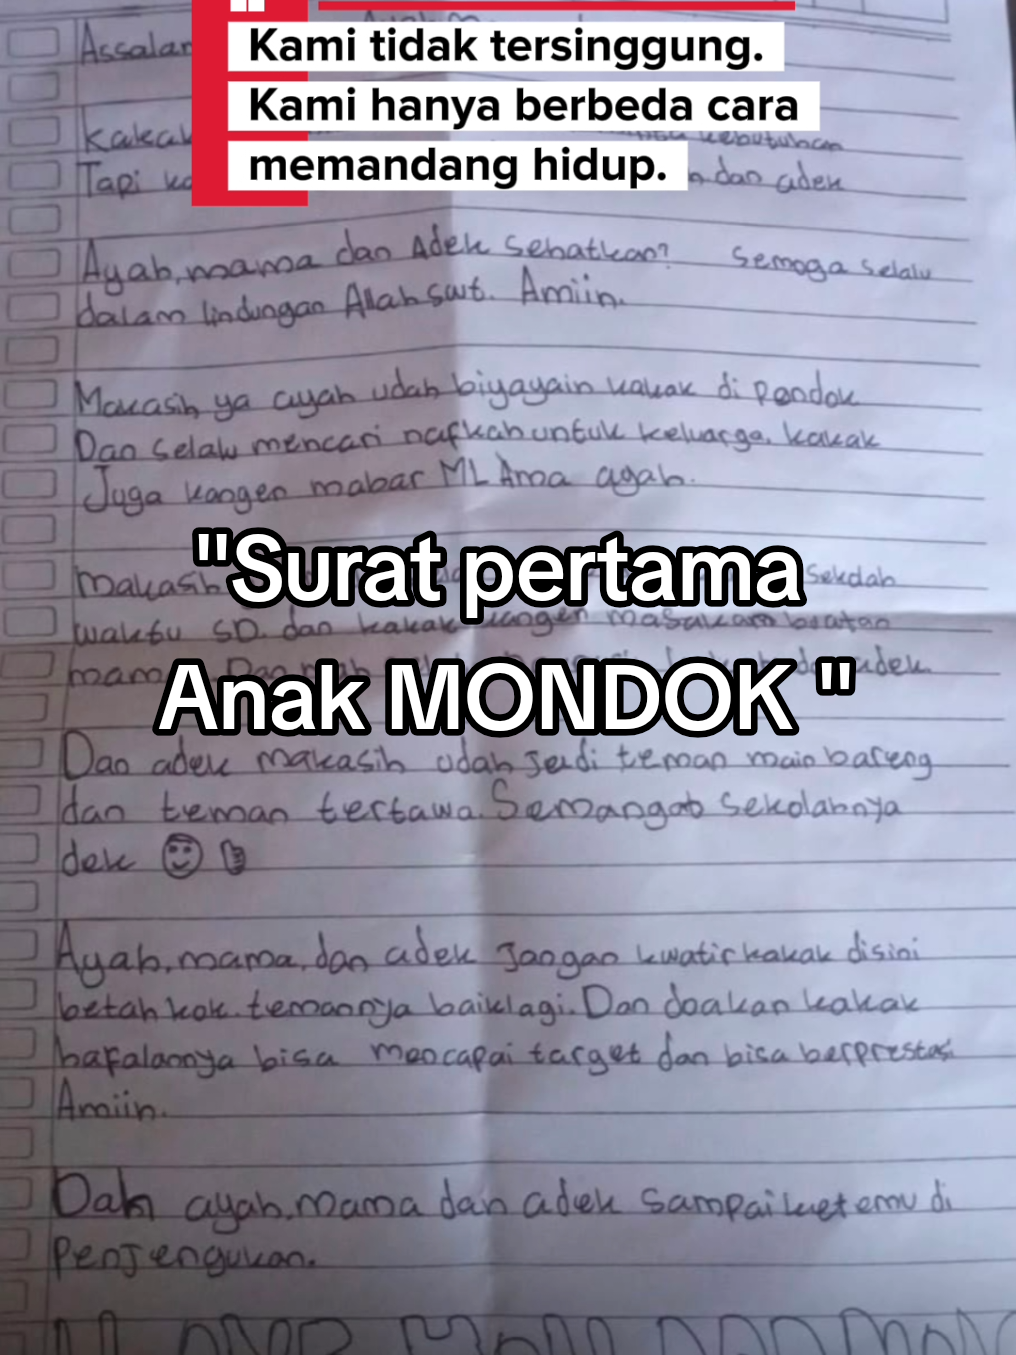 Assalam
Kami tidak tersinggung.
Kami hanya berbeda cara
memandang hidup.
Kakak kebutuhan
Tapi dan adek
Ayah, mama dan Adek sehatkan? Semoga selalu
dalam lindungan Allah swt. Amiin.
Makasih ya ayah udah biyayain kakak di pondok
Dan selalu mencari nafkah untuk keluarga. kakak
Juga kangen mabar ML Ama ayah.
"Surat pertama
Makasih sekolah
waktu SD. dan kakak kangen masakan buatan
Anak MONDOK "
mama adek.
Dan adek makasih udah jadi teman main bareng
dan teman tertawa. Semangat sekolahnya
dek
Ayah, mama, dan adek Jangan kwatir kakak disini
betah kok. temannya baik lagi. Dan doakan kakak
hafalannya bisa mencapai target dan bisa berprestasi.
Amiin.
Dah ayah, mama dan adek sampai ketemu di
Penjengukan.